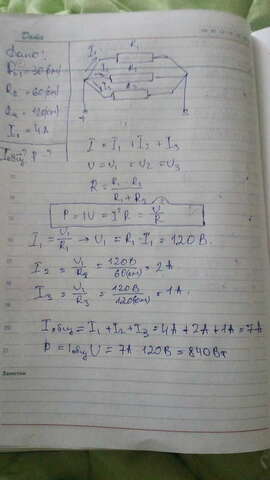 Дата
Дано:
R₁ = 30(ом)
R₂ = 60(ом)
R₃ = 120(ом)
I₁ = 4A
Iобщ? P - ?
I₁ R₁
I₂ R₂
I₃ R₃
I = I₁ + I₂ + I₃
U = U₁ = U₂ = U₃
R = R₁ · R₂ / R₁ + R₂
P = IU = I²R = U²/R
I₁ = U₁/R₁ → U₁ = R₁ · I₁ = 120 В.
I₂ = U₁/R₂ = 120В/60(ом) = 2A
I₃ = U₁/R₃ = 120В/120(ом) = 1A.
Iобщ = I₁ + I₂ + I₃ = 4A + 2A + 1A = 7A
P = Iобщ U = 7A · 120В = 840Вт
Заметки